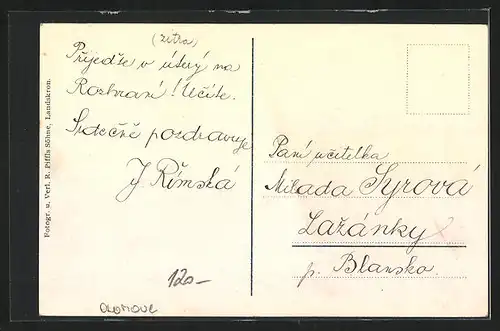 (zítra)
Přijeďte v úterý na
Rozhraní! Učíte.
Srdečně pozdravuje
J. Římská
Paní učitelka
Milada Syrová
Lažánky
p. Blansko.
120-
OLOMOUC
Fotogr. u. Verl. R. Piffls Söhne, Landskron.